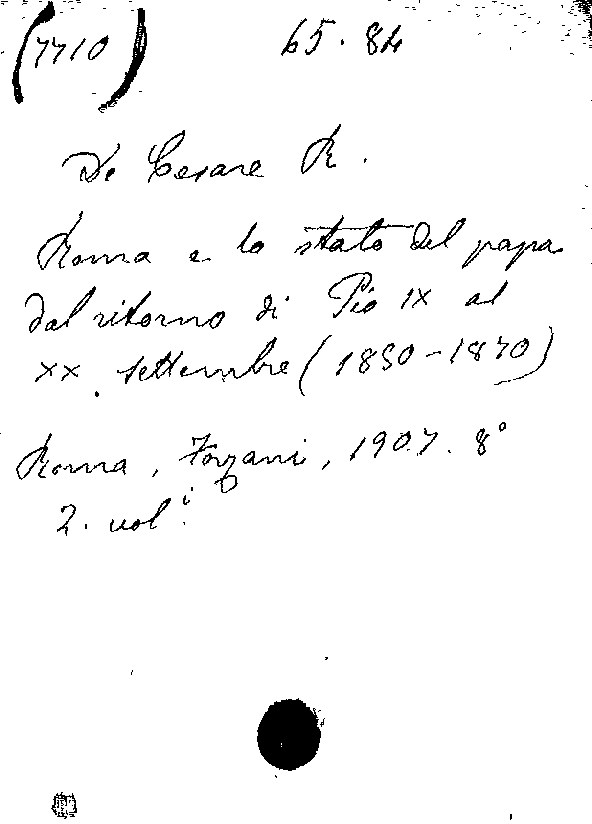 (7710) 65.84
De Cesare R.
Roma e lo stato del papa
dal ritorno di Pio IX al
XX settembre (1850-1870)
Roma, Forzani, 1907. 8°
2. vol.i